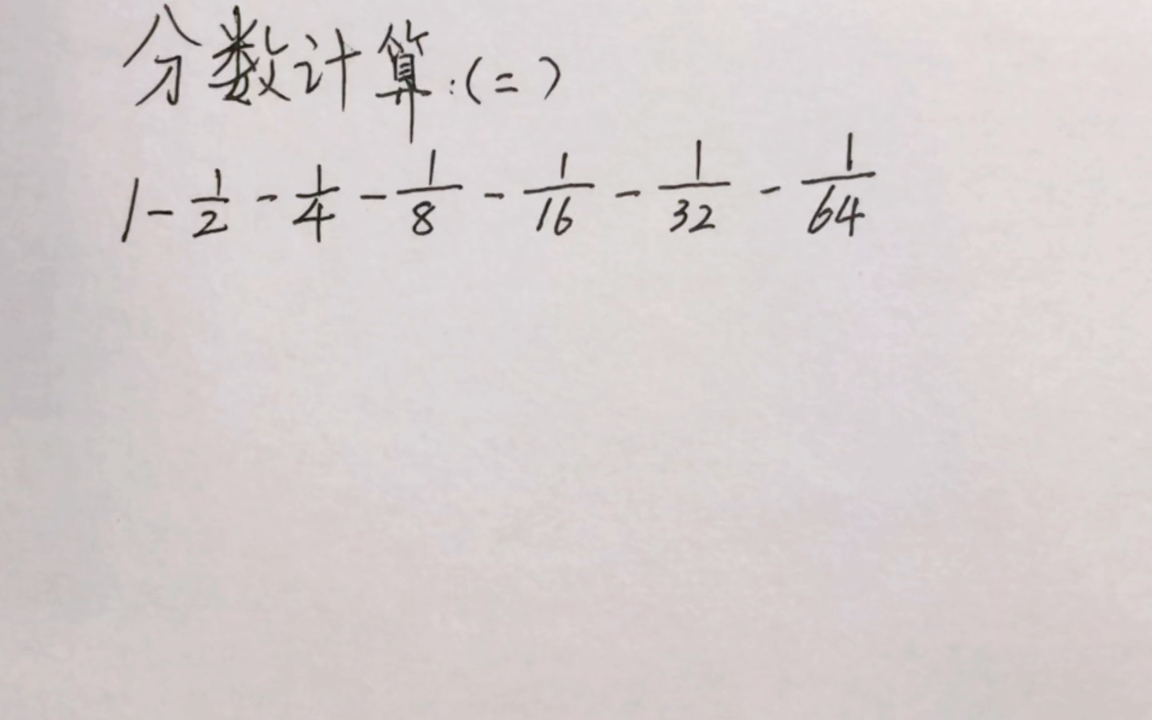 分数计算:(二)
1 - 1/2 - 1/4 - 1/8 - 1/16 - 1/32 - 1/64